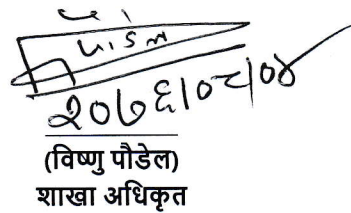 पौडेल
२०७६।०८।०४
(विष्णु पौडेल)
शाखा अधिकृत